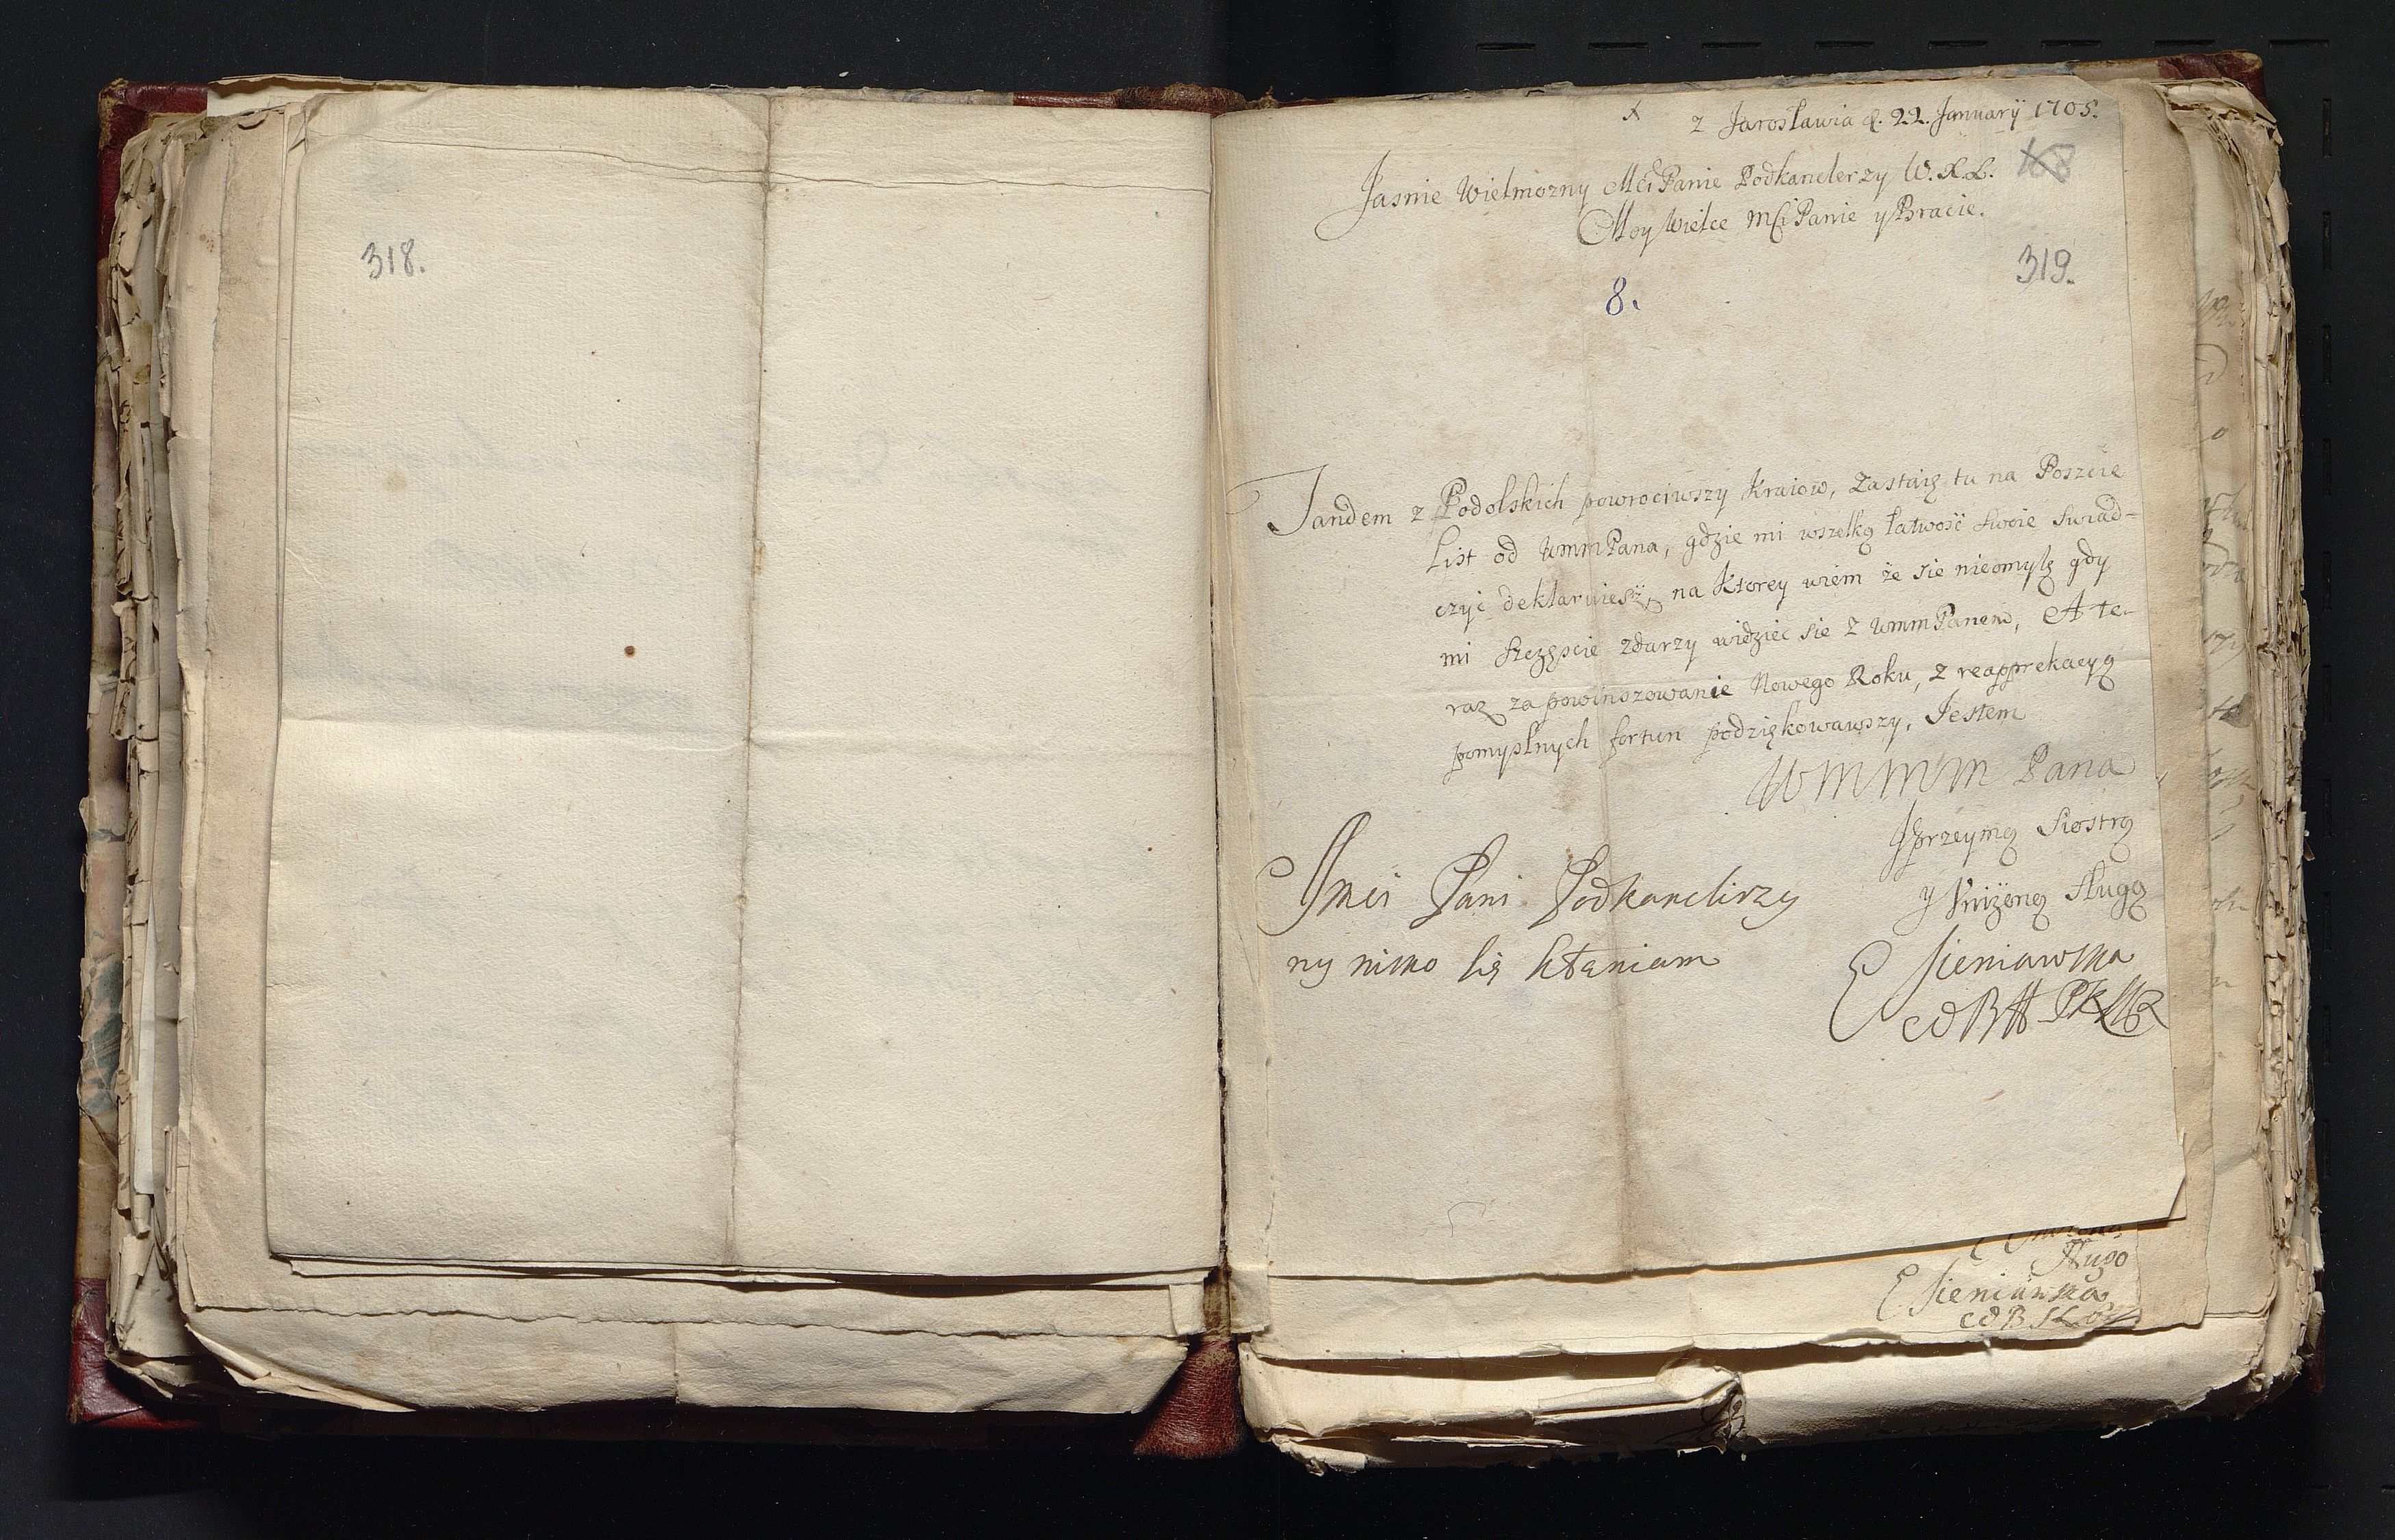 318.
z Jarosławia d. 22. Januarÿ 1705.
168
Jasnie Wielmozny Mci Panie Podkanclerzy W. X. L.
Moy Wielce Mci Panie y Bracie.
319.
8.
Tandem z Podolskich powrociwszy Kraiow, Zastaię tu na Poszcie
List od WmmPana, gdzie mi wszelką łatwość swoie swiad-
czyć deklaruiesz, na Ktorey wiem że sie nieomylę gdy
mi Szczęscie zdarzy widziec sie z WmmPanem, A te-
raz za powinszowanie Nowego Roku, z reapprekacyą
pomyslnych fortun podziękowawszy, Iestem
WMMM Pana
Uprzeymą Siostrą
y Vniżoną Sługą
E Sieniawska
Jmci Pani Podkanclirzy
ny nisko się kłaniam
Sługo
E Sieniawska